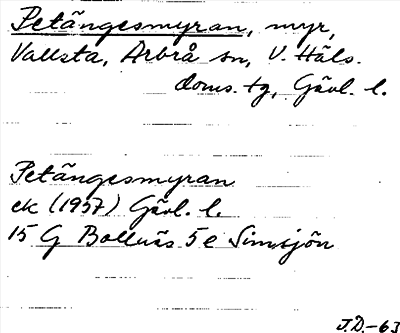 Petängesmyran, myr,
Vallsta, Arbrå sn, V. Häls.
doms. tg, Gävl. l.
Petängesmyran
ek (1957) Gävl. l.
15 G Bollnäs 5 e Simsjön
J.D.-63